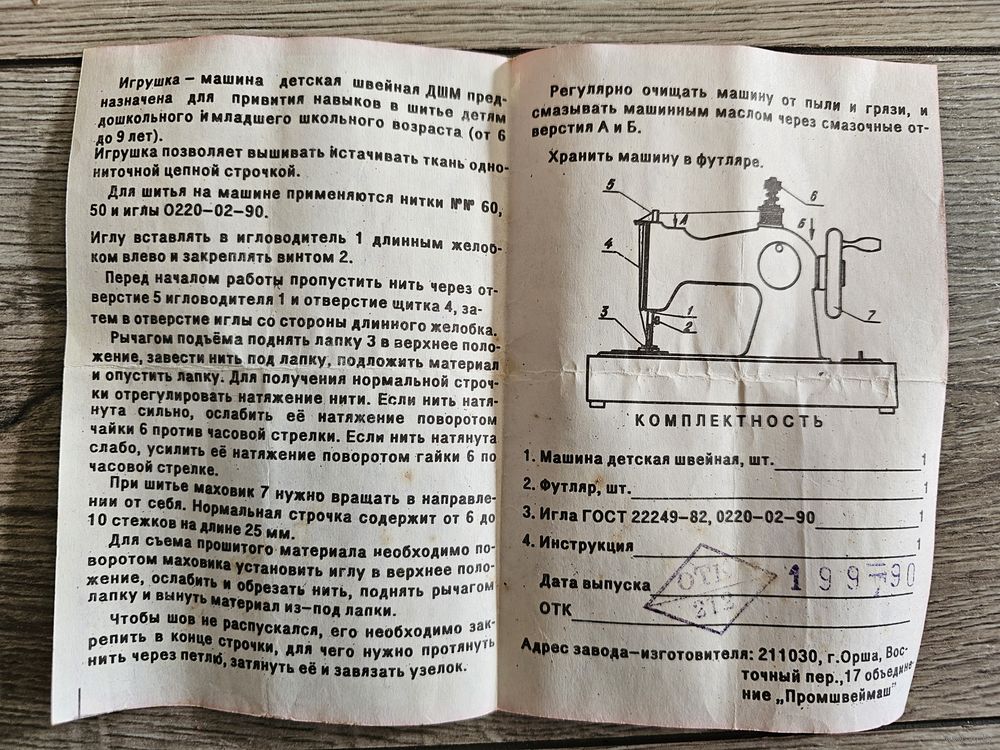 Игрушка – машина детская швейная ДШМ пред-
назначена для привития навыков в шитье детям
дошкольного и младшего школьного возраста (от 6
до 9 лет).
Игрушка позволяет вышивать и стачивать ткань одно-
ниточной цепной строчкой.
Для шитья на машине применяются нитки №№ 60,
50 и иглы 0220–02–90.
Иглу вставлять в игловодитель 1 длинным желоб-
ком влево и закреплять винтом 2.
Перед началом работы пропустить нить через от-
верстие 5 игловодителя 1 и отверстие щитка 4, за-
тем в отверстие иглы со стороны длинного желобка.
Рычагом подъёма поднять лапку 3 в верхнее поло-
жение, завести нить под лапку, подложить материал
и опустить лапку. Для получения нормальной строч-
ки отрегулировать натяжение нити. Если нить натя-
нута сильно, ослабить её натяжение поворотом
чайки 6 против часовой стрелки. Если нить натянута
слабо, усилить её натяжение поворотом гайки 6 по
часовой стрелке.
При шитье маховик 7 нужно вращать в направле-
нии от себя. Нормальная строчка содержит от 6 до
10 стежков на длине 25 мм.
Для съема прошитого материала необходимо по-
воротом маховика установить иглу в верхнее поло-
жение, ослабить и обрезать нить, поднять рычагом
лапку и вынуть материал из–под лапки.
Чтобы шов не распускался, его необходимо зак-
репить в конце строчки, для чего нужно протянуть
нить через петлю, затянуть её и завязать узелок.
Регулярно очищать машину от пыли и грязи, и
смазывать машинным маслом через смазочные от-
верстия А и Б.
Хранить машину в футляре.
5
А
6
Б
4
3
1
2
7
КОМПЛЕКТНОСТЬ
1. Машина детская швейная, шт. 1
2. Футляр, шт. 1
3. Игла ГОСТ 22249–82, 0220–02–90 1
4. Инструкция 1
Дата выпуска 199 90
ОТК
212
ОТК
Адрес завода–изготовителя: 211030, г.Орша, Вос-
точный пер.,17 объедине-
ние „Промшвеймаш"